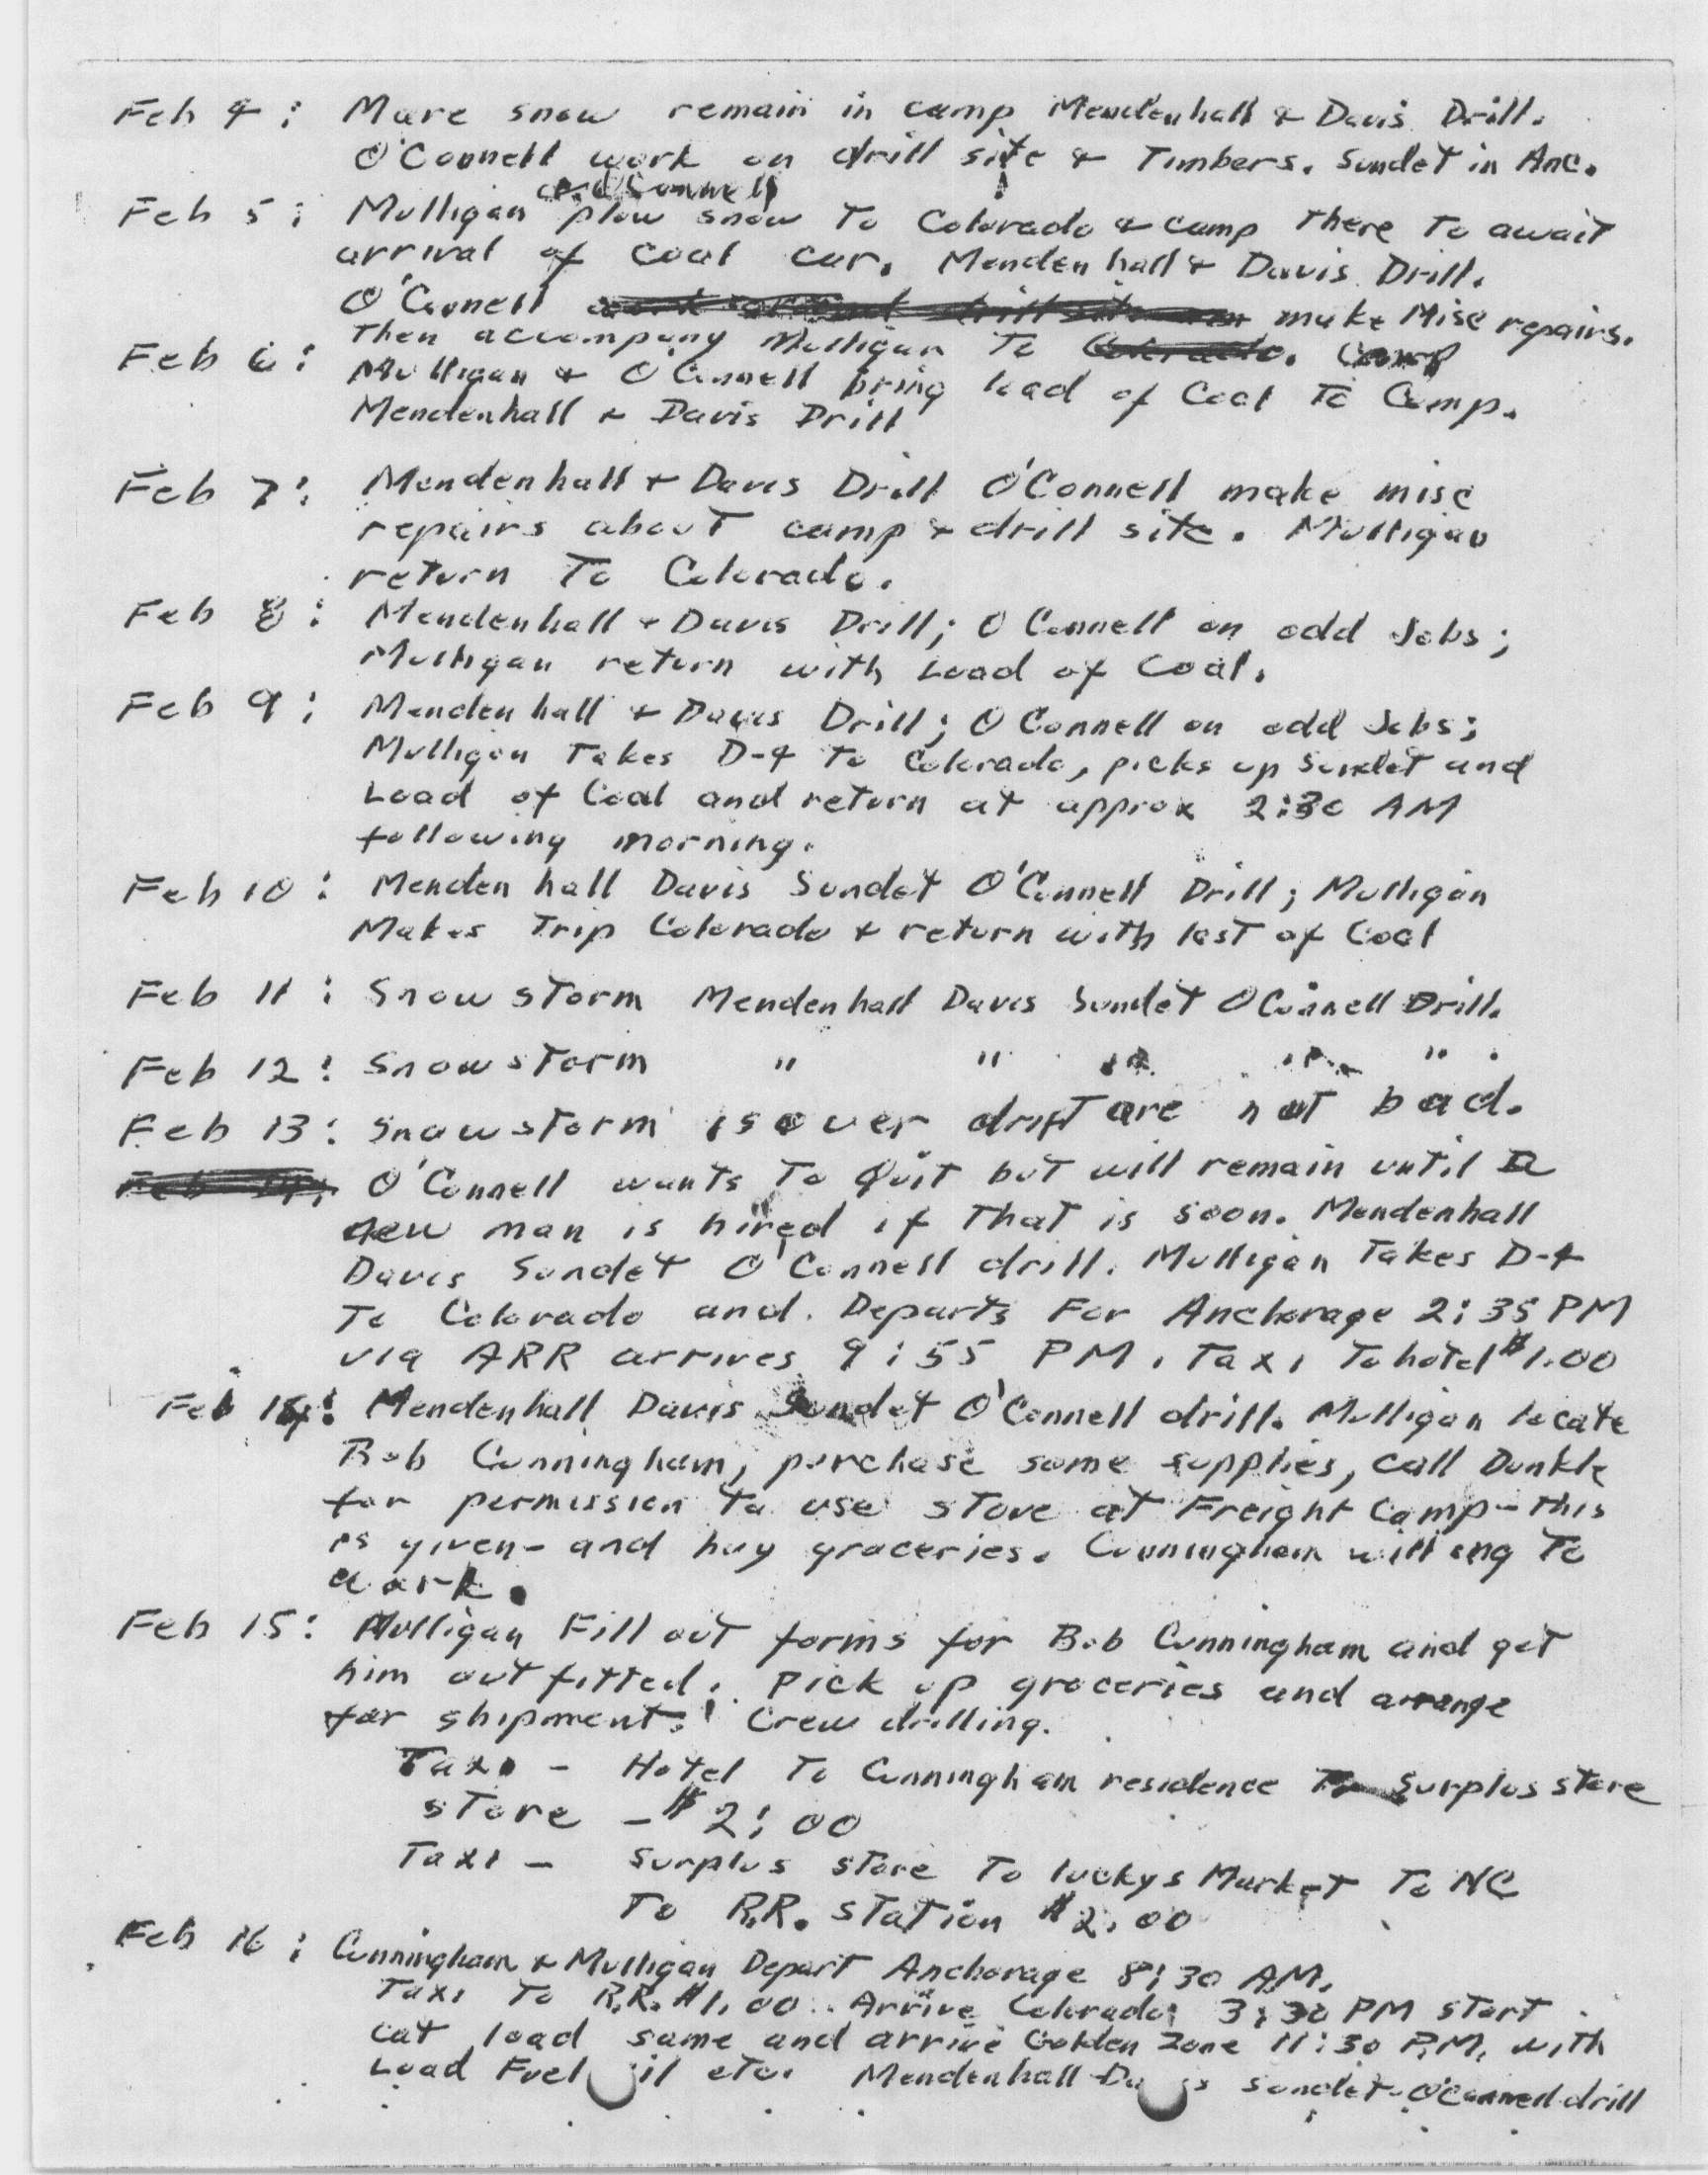 Feb 4: More snow remain in camp Mendenhall & Davis Drill.
O'Connell work on drill site & Timbers. Sundet in Anc.
and O'Connell
Feb 5: Mulligan plow snow To Colorado & camp There To await
arrival of coal car. Mendenhall & Davis Drill.
O'Connell make Misc repairs.
Then accompany Mulligan To Colorado. Camp
Feb 6: Mulligan & O'Connell bring load of Coal To Camp.
Mendenhall & Davis Drill
Feb 7: Mendenhall & Davis Drill O'Connell make misc
repairs about camp & drill site. Mulligan
return To Colorado.
Feb 8: Mendenhall & Davis Drill; O Connell on odd Jobs;
Mulligan return with Load of Coal.
Feb 9: Mendenhall & Davis Drill; O Connell on odd Jobs;
Mulligan Takes D-4 To Colorado, picks up Sundet and
Load of Coal and return at approx 2:30 AM
following morning.
Feb 10: Mendenhall Davis Sundet O'Connell Drill; Mulligan
Makes Trip Colorado & return with last of Coal
Feb 11: Snow storm Mendenhall Davis Sundet O Connell Drill.
Feb 12: Snowstorm " " " " " .
Feb 13: Snowstorm is over drift are not bad.
Feb 14: O'Connell wants To Quit but will remain until a
new man is hired if That is soon. Mendenhall
Davis Sundet O'Connell drill. Mulligan Takes D-4
To Colorado and. Departs For Anchorage 2:35 PM
via ARR arrives 9:55 PM. Taxi To hotel $1.00
Feb 14: Mendenhall Davis Sundet O'Connell drill. Mulligan locate
Bob Cunningham, purchase some supplies, call Dunkle
for permission to use stove at Freight Camp - This
is given - and buy groceries. Cunningham willing To
work.
Feb 15: Mulligan Fill out forms for Bob Cunningham and get
him outfitted. Pick up groceries and arrange
for shipment. Crew drilling.
Taxi - Hotel To Cunningham residence To Surplus store
store - $2:00
Taxi - Surplus store To luckys Market To NC
To R.R. Station $2.00
Feb 16: Cunningham & Mulligan Depart Anchorage 8:30 AM.
Taxi To R.R. $1.00. Arrive Colorado: 3:30 PM start
cat load same and arrive Golden Zone 11:30 P.M. with
Load Fuel oil etc. Mendenhall-Davis Sundet-O'Connell drill